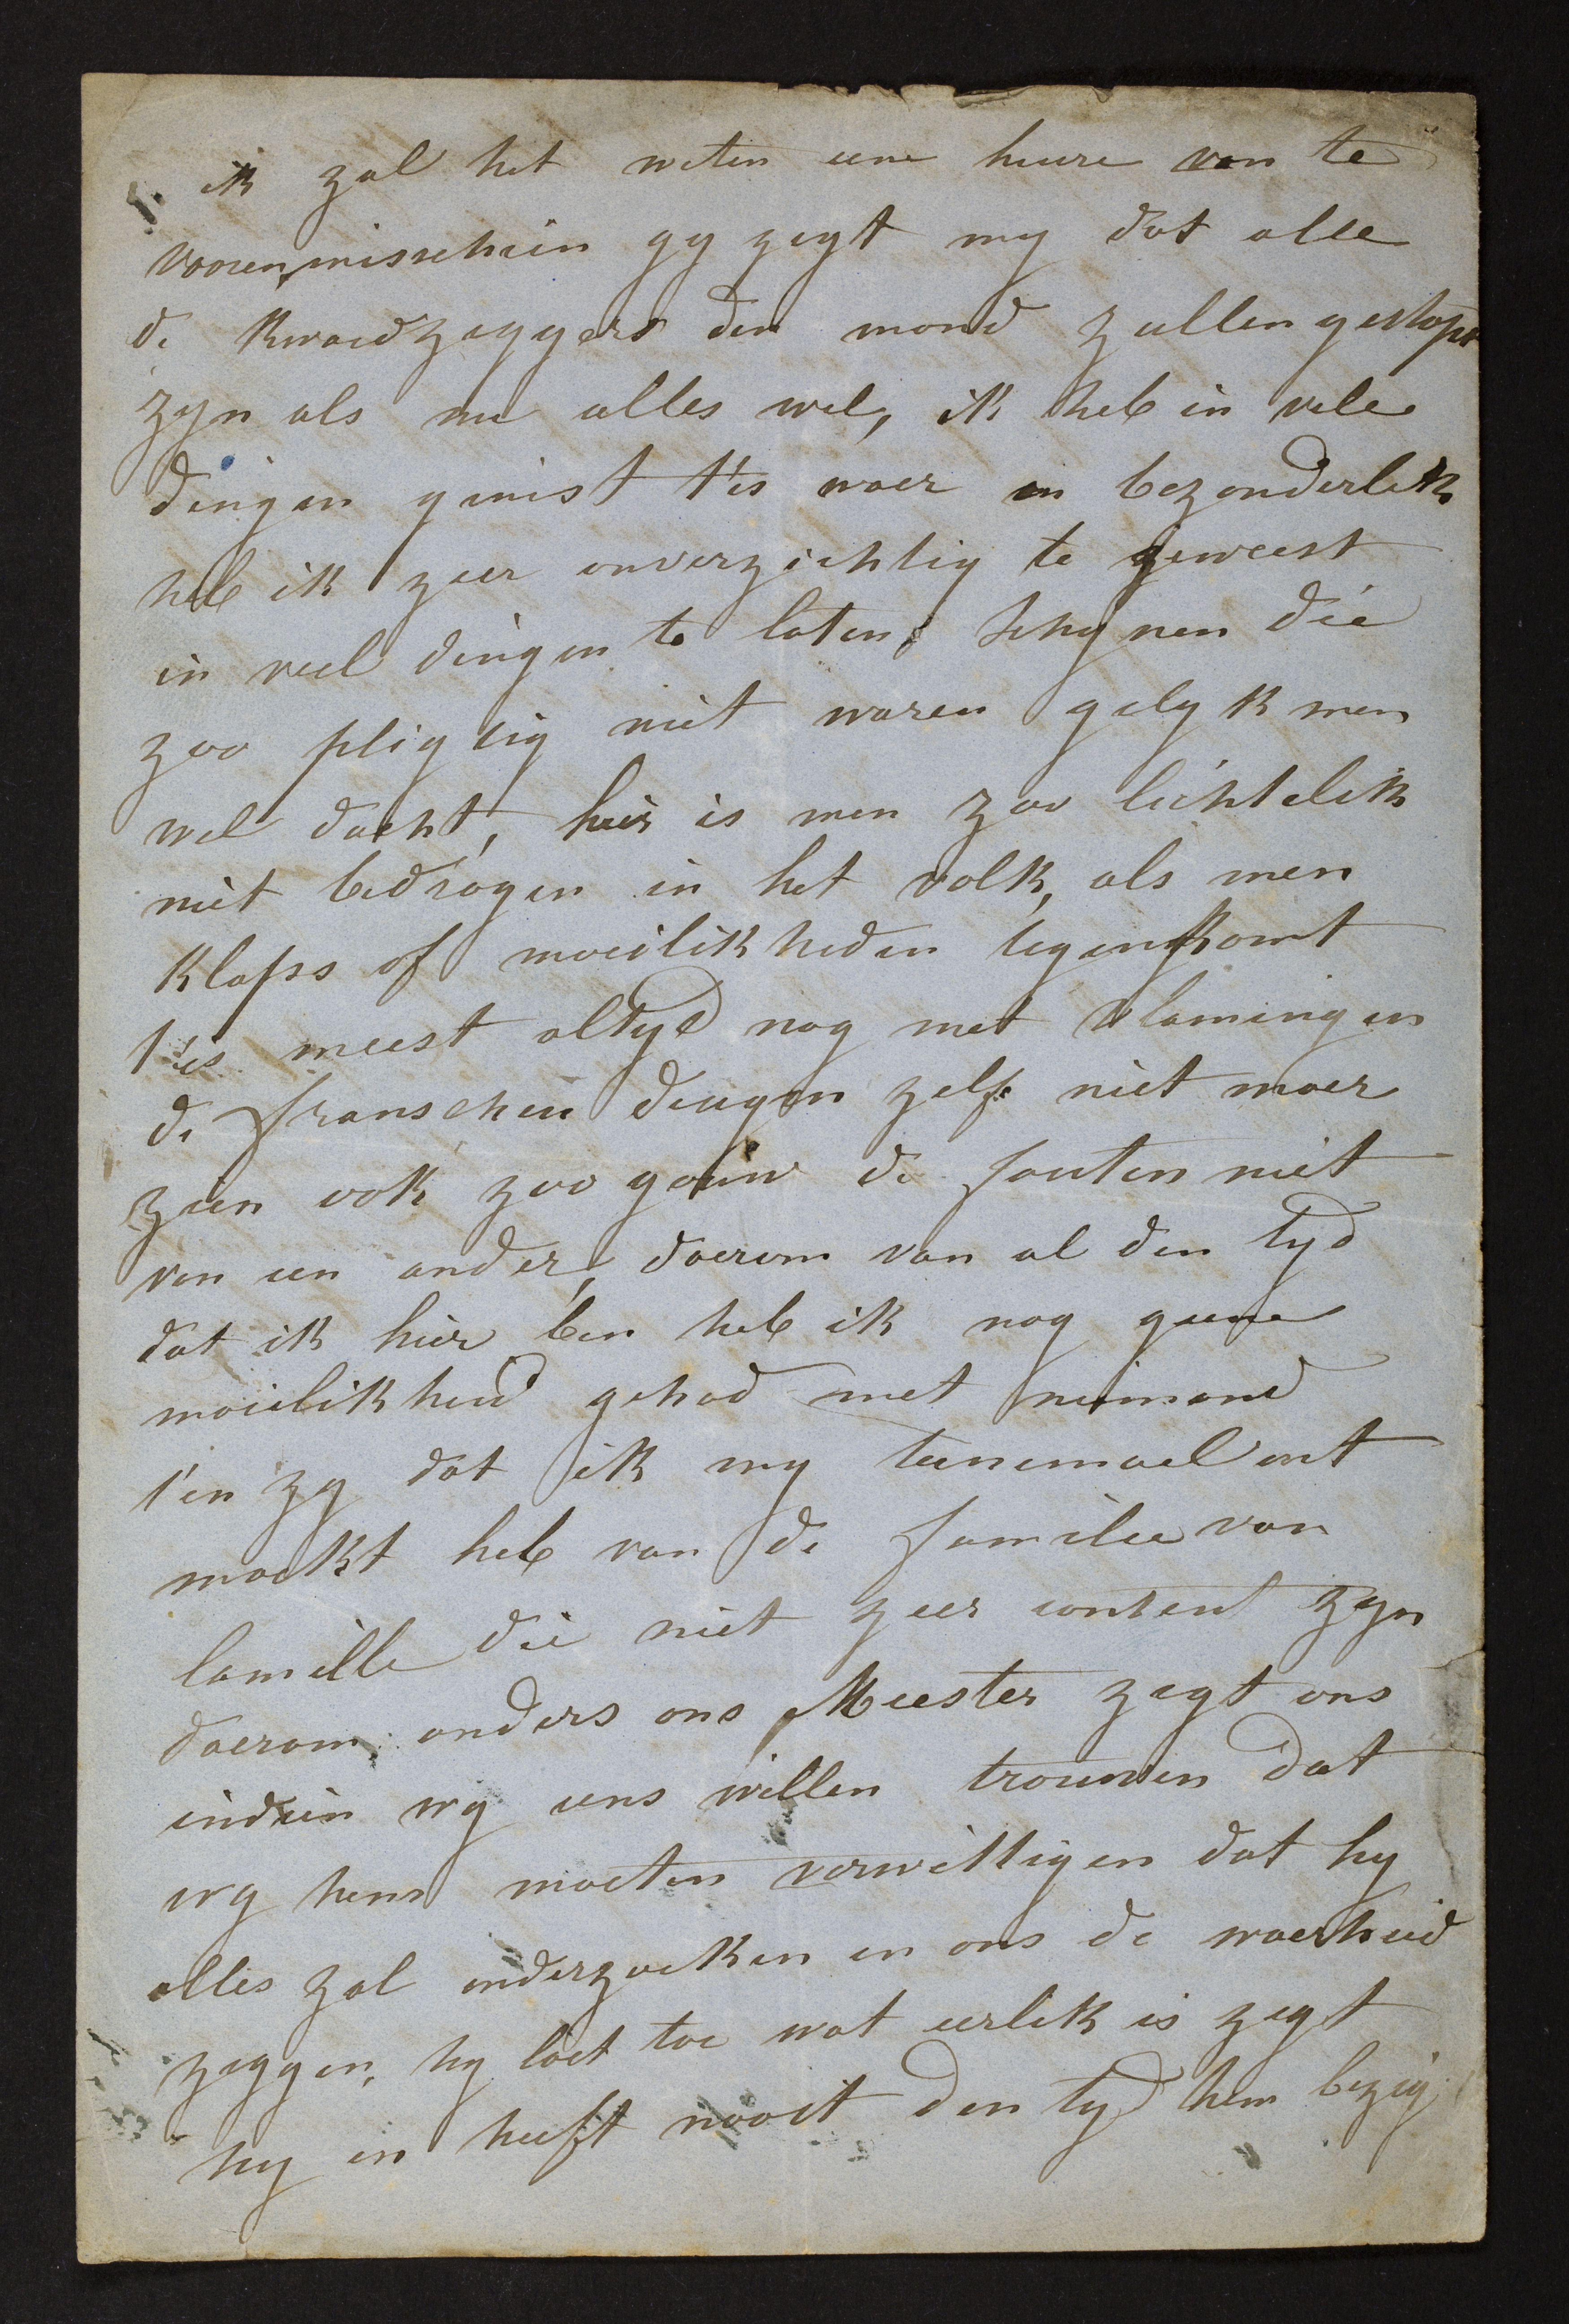 ik zal het weten eene heure van te
vooren, misschien gy zegt my dat alle
de kwaedzeggers den mond zullen gestopt
zyn als nu alles wel, ik heb in vele
dingen gemist t'is waer en bezonderlik
heb ik zeer onverzichtig te geweest
in veel dingen te laten schynen die
zoo pligtig niet waren gelyk men
wel dacht, hier is men zoo lichtelik
niet bedrogen in het volk, als men
klaps of moeilikheden tegenkomt
t'is meest altyd nog met vlamingen
de franschen deugen zelfs niet maer
zien ook zoo gauw de fouten niet
van een ander, daerom van al den tyd
dat ik hier ben heb ik nog geene
moielikheid gehad met niemand
t'en zy dat ik my teenemael ont
maekt heb van de familie van
Camille die niet zeer content zyn
daerom, anders ons Meester zegt ons
indien wy eens willen trouwen dat
wy hem moeten verwittigen dat hy
alles zal onderzoeken en ons de waerheid
zeggen, hy laet toe wat eerlik is zegt
hy en heeft nooit den tyd hem bezig